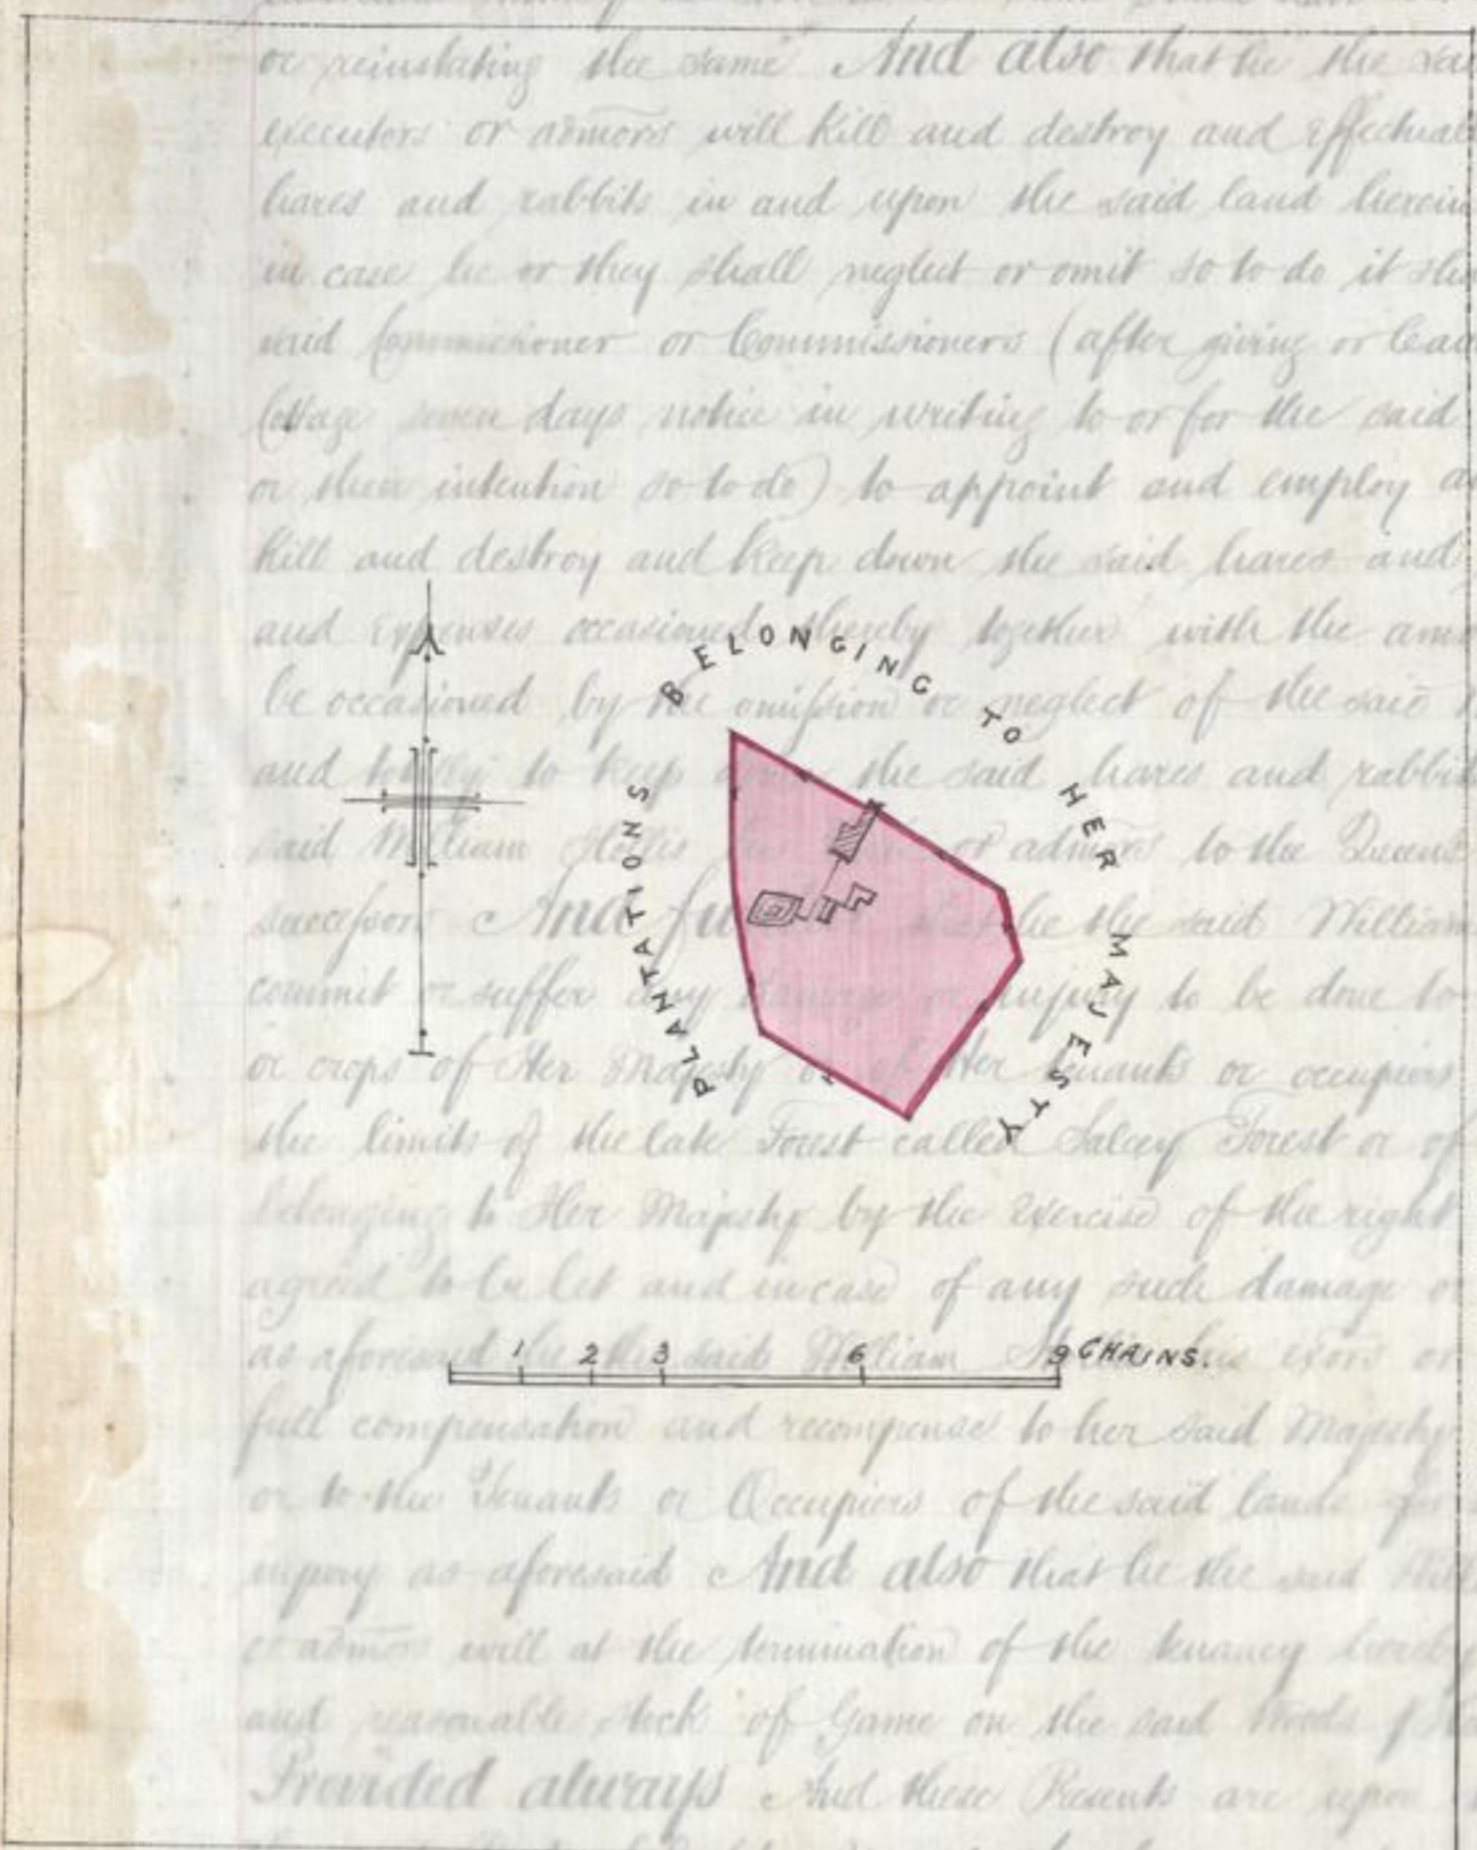 or reinstating the same And also that he the sai
executors or admors will kill and destroy and effectual
hares and rabbits in and upon the said land herein
in case he or they shall neglect or omit so to do it sha
said Commissioner or Commissioners (after giving or leav
Cottage seven days notice in writing to or for the said
or their intention so to do) to appoint and employ a
kill and destroy and keep down the said hares and
and expenses occasioned thereby together with the amo
be occasioned by the omission or neglect of the said
and totally to keep down the said hares and rabbit
said William Hollis or admors to the Queens
successors And further that he the said William
commit or suffer any damage or injury to be done to
or crops of Her Majesty or of Her tenants or occupiers
the limits of the late Forest called Salcey Forest or of
belonging to Her Majesty by the exercise of the right
agreed to be let and in case of any such damage or
as aforesaid he the said William his exors or
full compensation and recompense to her said Majesty
or to the Tenants or Occupiers of the said lands for
injury as aforesaid And also that he the said Will
or admors will at the termination of the tenancy hereby
and reasonable stock of Game on the said Woods
Provided always And these Presents are upon
PLANTATIONS BELONGING TO HER MAJESTY
1 2 3 6 9 CHAINS.